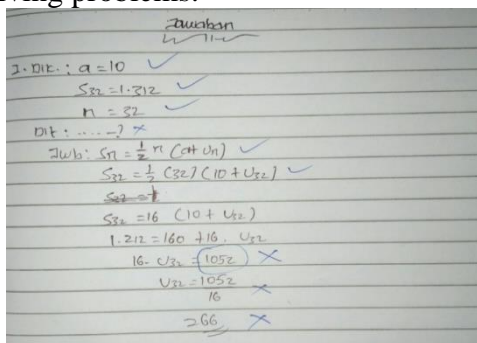 ving problems.
Jawaban
1. Dik : a = 10
S32 = 1.312
n = 32
Dit : ..... ?
Jwb : Sn = 1/2 n (a+ Un)
S32 = 1/2 (32) (10 + U32)
S32 = 16 (10 + U32)
1.212 = 160 + 16. U32
16. U32 = 1052
U32 = 1052/16
= 266